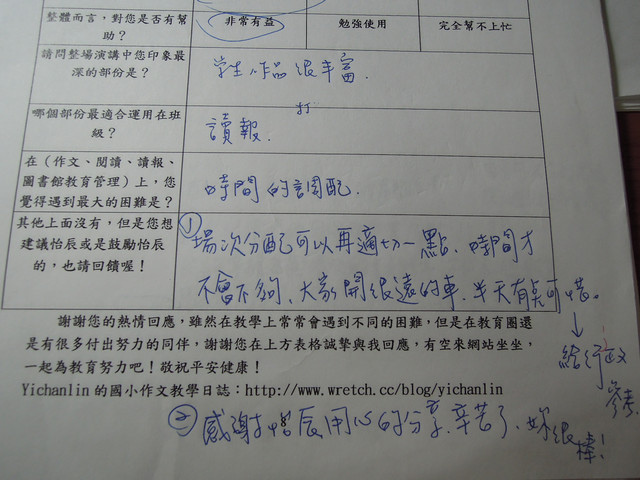 整體而言，對您是否有幫助？
非常有益
勉強使用
完全幫不上忙
請問整場演講中您印象最深的部份是？
學生作品很丰富.
哪個部份最適合運用在班級？
打
讀報.
在（作文、閱讀、讀報、圖書館教育管理）上，您覺得遇到最大的困難是？
時間的調配.
其他上面沒有，但是您想建議怡辰或是鼓勵怡辰的，也請回饋喔！
① 場次分配可以再適切一點、時間才
不會不夠、大家開很遠的車、半天有點可惜。
→給行政
參考.
謝謝您的熱情回應，雖然在教學上常常會遇到不同的困難，但是在教育圈還
是有很多付出努力的同伴，謝謝您在上方表格誠摯與我回應，有空來網站坐坐，
一起為教育努力吧！敬祝平安健康！
Yichanlin 的國小作文教學日誌：http://www.wretch.cc/blog/yichanlin
② 感謝怡辰用心的分享.辛苦了、妳很
棒！